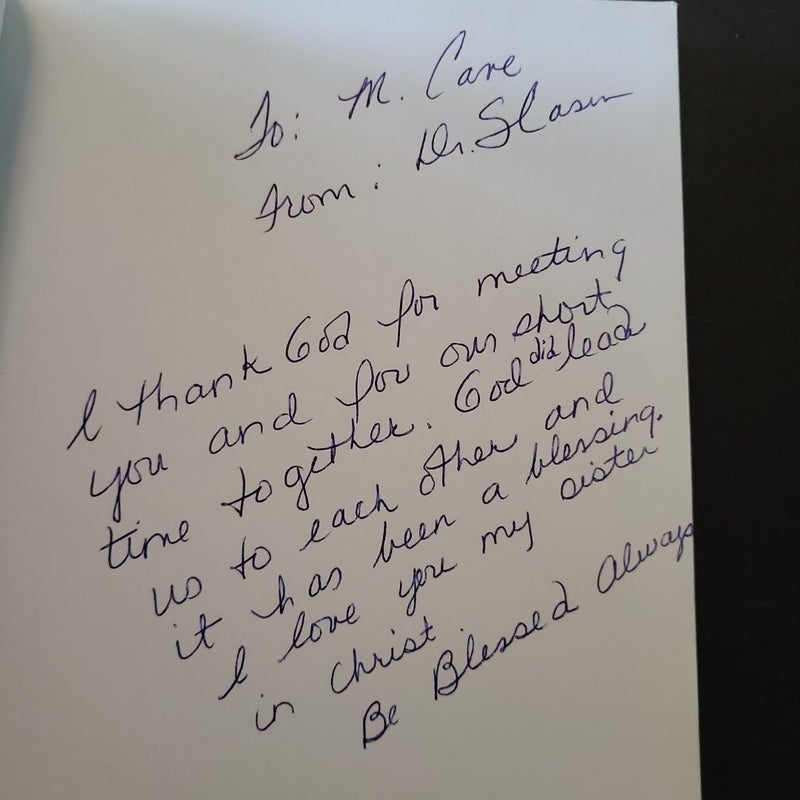 To: M. Cane
From: Dr.
I thank God for meeting
you and for our short
time together. God did lead
us to each other and
it has been a blessing.
I love you my sister
in Christ.
Be Blessed Always